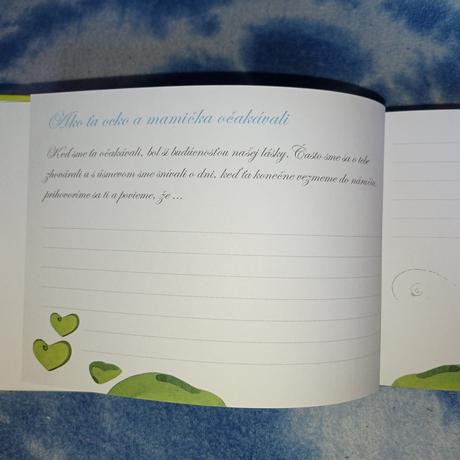 Ako ťa ocko a mamička očakávali
Keď sme ťa očakávali, bol si budúcnosťou našej lásky. Často sme sa o tebe
zhovárali a s úsmevom sme snívali o dni, keď ťa konečne vezmeme do náručia,
prihovoríme sa ti a povieme, že ...